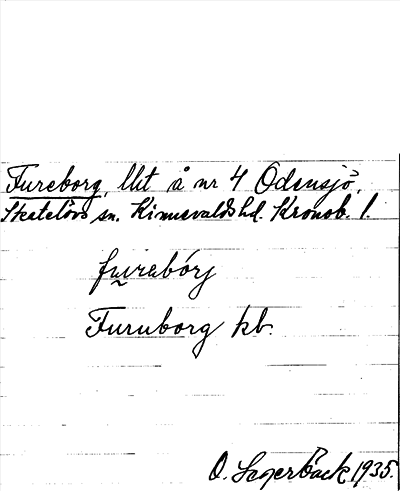 Fureborg, lht å nr 4 Odensjö,
Skatelövs sn. Kinnevalds hd. Kronob. l.
furabórj
Furuborg kb.
O. Lagerbäck 1935.